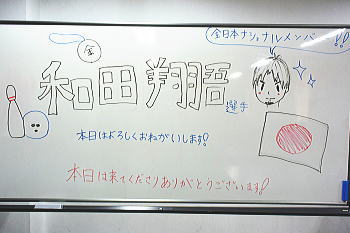 全日本ナショナルメンバー!!
金
和田翔吾
選手
本日はよろしくおねがいします!
本日は来てくださりありがとうございます!